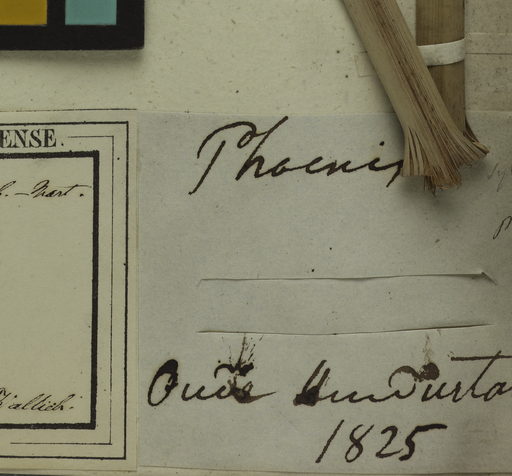 ENSE.
Mart.
Phoenix
Wallich.
Oude Hindusta
1825